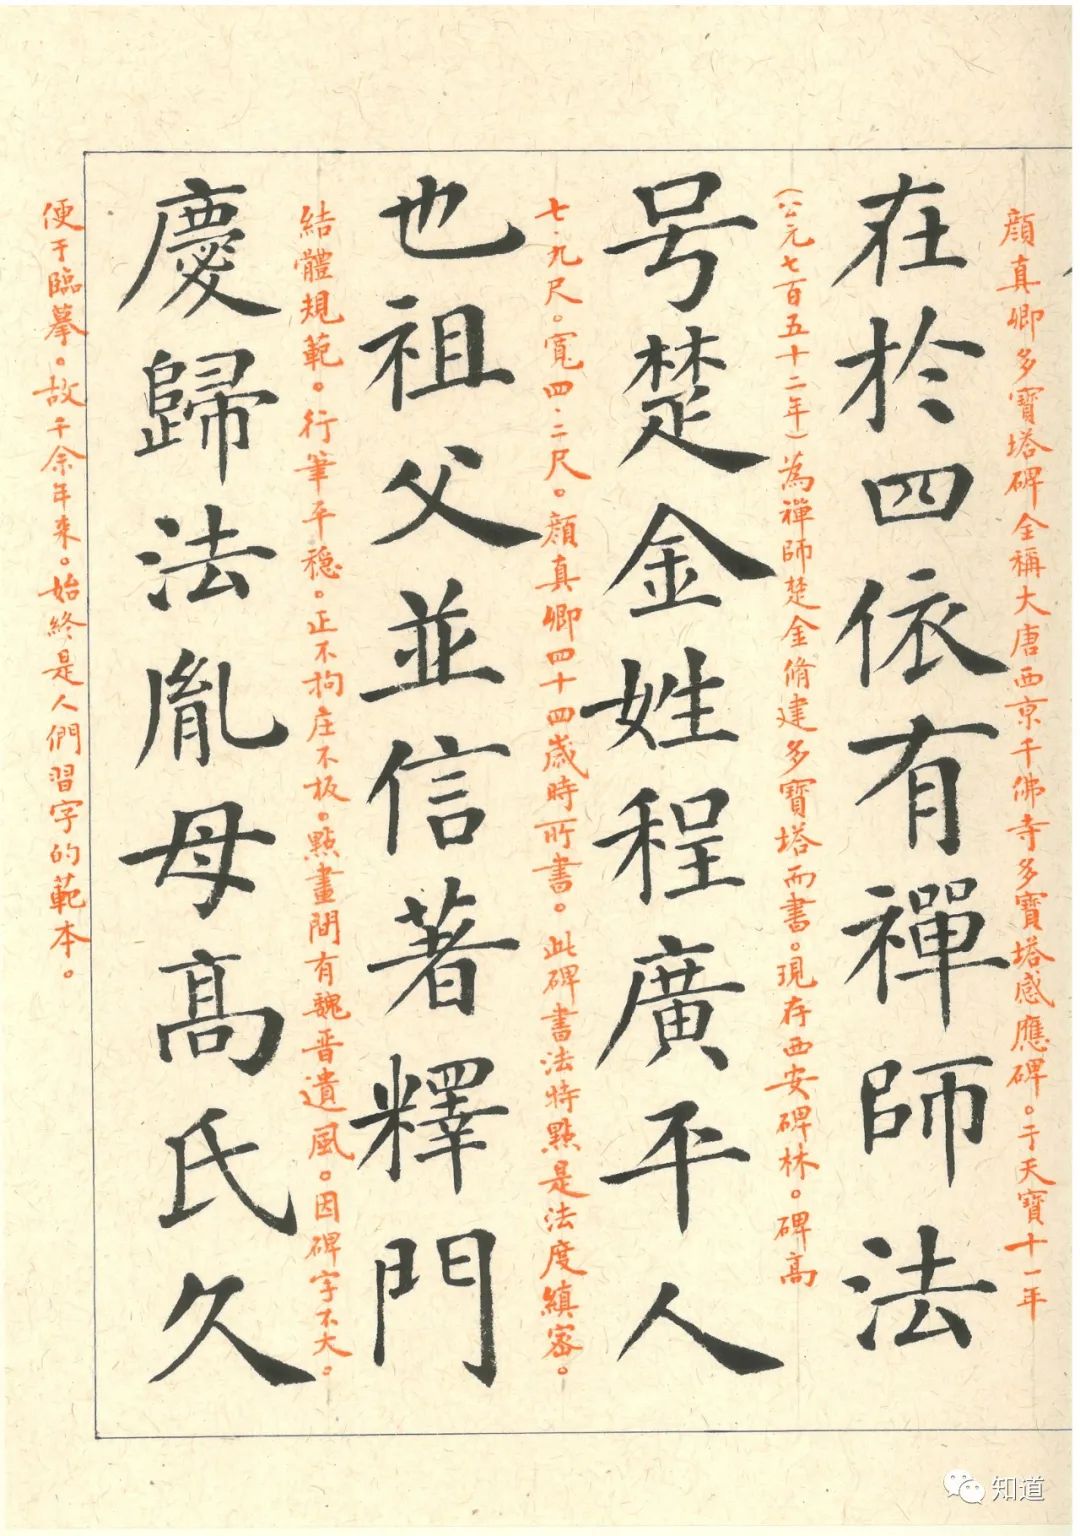 顔真卿多寶塔碑全稱大唐西京千佛寺多寶塔感應碑。于天寶十一年
在於四依有禪師法
（公元七百五十二年）為禪師楚金脩建多寶塔而書。現存西安碑林。碑高
号楚金姓程廣平人
七.九尺。寬四.二尺。顔真卿四十四歲時所書。此碑書法特點是法度縝密。
也祖父並信著釋門
結體規範。行筆平穩。正不拘庄不板。點畫間有魏晋遺風。因碑字不大。
慶歸法胤母髙氏久
便于臨摹。故千余年来。始終是人們習字的範本。
知道